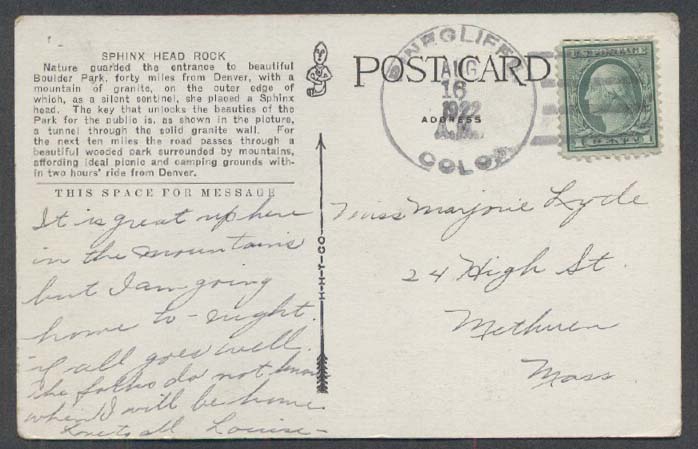 SPHINX HEAD ROCK
Nature guarded the entrance to beautiful
Boulder Park, forty miles from Denver, with a
mountain of granite, on the outer edge of
which, as a silent sentinel, she placed a Sphinx
head. The key that unlocks the beauties of the
Park for the public is, as shown in the picture,
a tunnel through the solid granite wall. For
the next ten miles the road passes through a
beautiful wooded park surrounded by mountains,
affording ideal picnic and camping grounds with-
in two hours' ride from Denver.
THIS SPACE FOR MESSAGE
It is great up here
in the mountains
but I am going
home to-night.
if all goes well.
the folks do not know
when I will be home
Love to all Louise-
H-H-T-CO
POST CARD
ADDRESS
PINECLIFFE
AUG
16
1922
A.M.
COLO.
Miss Marjorie Lyde
24 High St.
Methuen
Mass.